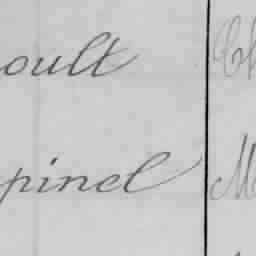 oult
pinel